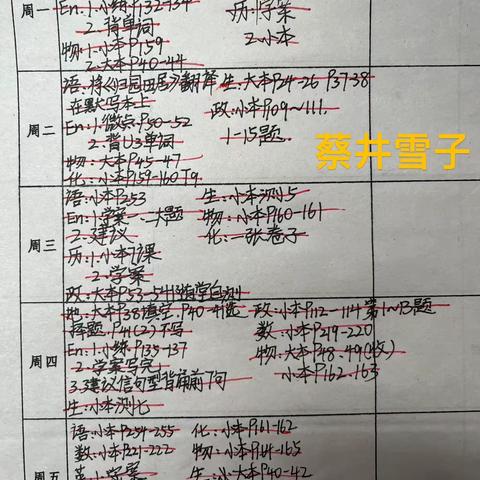 周一
En:1.小练P132-134
2.背单词
物:1.小本P159
2.大本P40-44
历:1.学案
2.小本
周二
语:将《归园田居》翻译
在默写本上
En:1.微点P50-52
2.背U3单词
物:大本P45-47
化:小本P159-160 T9
生:大本P24-26 P37-38
政:小本P109~111.
1-15题.
蔡井雪子
周三
语:小本P253
En:1.学案一、二大题
2.建议
历:1.小本7课
2.学案
政:大本P53-54+3随堂自测
生:小本测5
物:小本P160-161
化:一张卷子
周四
地:大本P38填空.P40-41选
择题.P41(2)不写
En:1.小练P135-137
2.学案写完
3.建议信句型背诵前7句
生:小本测七
政:小本P112-114第1~13题
数:小本P219-220
物:大本P48-49
小本P162.163
周五
语:小本P254-255
数:小本P221-222
英:小学案
化:小本P161-162
物:小本P164-165
生:小大本P40-42